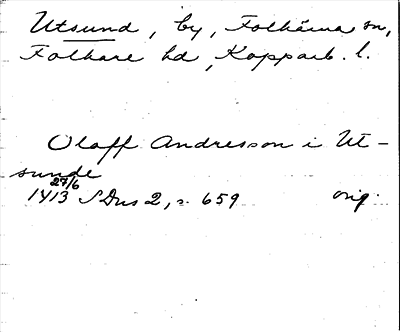 Utsund, by, Folkärna sn,
Folkare hd, Kopparb. l.
Olaff Andresson i Ut-
sunde
27/6
1413 SDns 2, s. 659 orig.